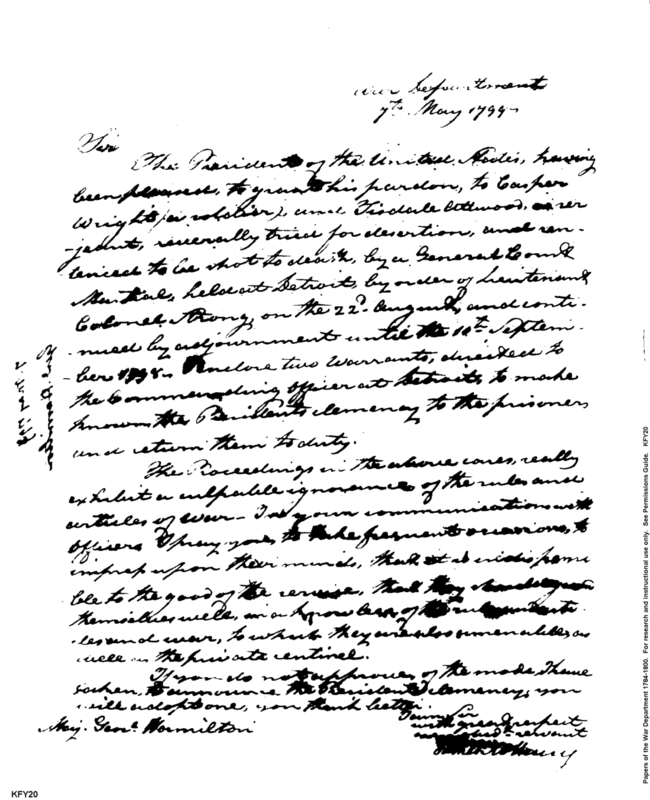 War Department
7th May 1799
Sir
The President of the United States, having
been pleased, to grant his pardon, to Casper
Wright (a soldier), and Tisdale Attwood, a ser
-jeant, severally tried for desertion, and sen-
tenced to be shot to death, by a General Court
Martial, held at Detroit, by order of Lieutenant
Colonel Strong, on the 22d August, and conti-
-nued by adjournment until the 10th Septem-
-ber 1798. I enclose two Warrants, directed to
the Commanding Officer at Detroit, to make
known the President's clemency to the prisoners
and return them to duty.
The Proceedings in the above cases, really
exhibit a culpable ignorance of the rules and
articles of war. In your communications with
Officers I pray you, to take frequent occasions, to
impress upon their minds, that it is indispensi
ble to the good of the service, that they should
themselves well, in a knowledge of the rules
and war, to which they are also amenable, as
well as the private centinel.
If you do not approve of the mode I have
taken, to announce the President's clemency, you
will adopt one, you think better.
I am Sir
with great respect
servant
James McHenry
Maj. Genl. Hamilton
KFY20
Papers of the War Department 1784-1800. For research and instructional use only. See Permissions Guide. KFY20